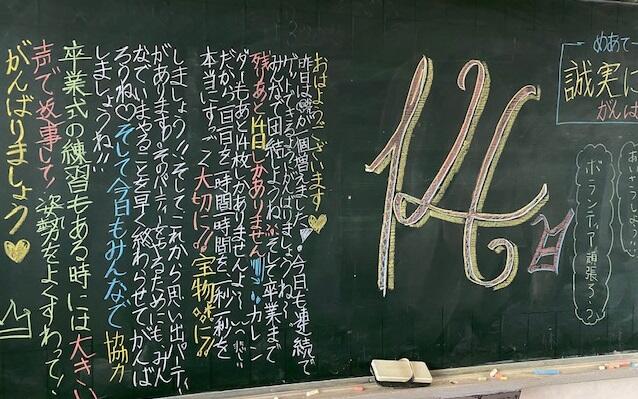 めあて
誠実に
がんば
ボランティア頑張ろう
14日
おはようございます♡
昨日は 一個増えました！今日も連続で
ゲットできるようがんばりましょうね～
みんなで団結しようね そして卒業まで
残りあと14日しかありません!!! カレン
ダーもあと14枚しかありませんよ～
だから一日一日を、一時間一時間を、一秒一秒を
本当にすっごく大切に!!宝物に!!
しましょう!!そしてこれから思い出パーティー
があります。そのパーティーをやるためにも、みん
なでいまやることを早く終わらせてがんば
ろうね♡そして今日もみんなで協力
しましょうね!!
卒業式の練習もある時には大きい
声で返事して！姿勢をよくすわって！
がんばりましょう♡